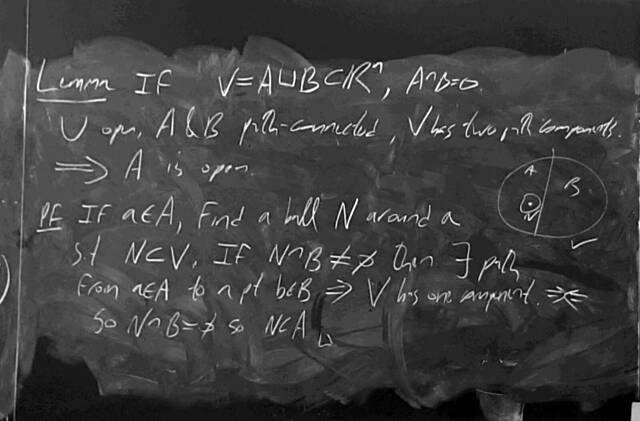 Lemma IF V=A⊔B⊂ℝⁿ, A∩B=∅.
U open, A & B path-connected, V has two path components.
⟹ A is open.
A
B
N
V
PF IF a∈A, Find a ball N around a
s.t N⊂V. IF N∩B≠∅ then ∃ path
From a∈A to a pt b∈B ⟹ V has one component.
So N∩B=∅ so N⊂A